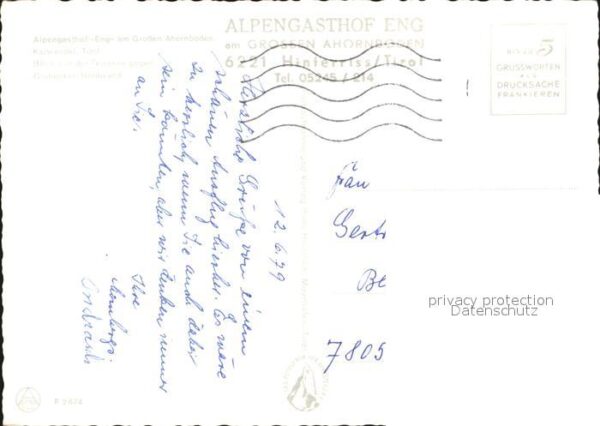 Alpengasthof -Eng- am Großen Ahornboden
Karwendel, Tirol
ALPENGASTHOF ENG
am GROSSEN AHORNBODEN
6221 Hinterriss/Tirol
Tel. 05245 / 214
5
GRUSSWORTEN
ALS
DRUCKSACHE
FRANKIEREN
12.6.79
Herzliche Grüße von einem
schönen Ausflug hierher. Es wäre
so herrlich, wenn Sie auch dabei
sein könnten, aber wir denken immer
an Sie.
Ihre
Frau
Gert
Be
7805
privacy protection
Datenschutz
P 2674